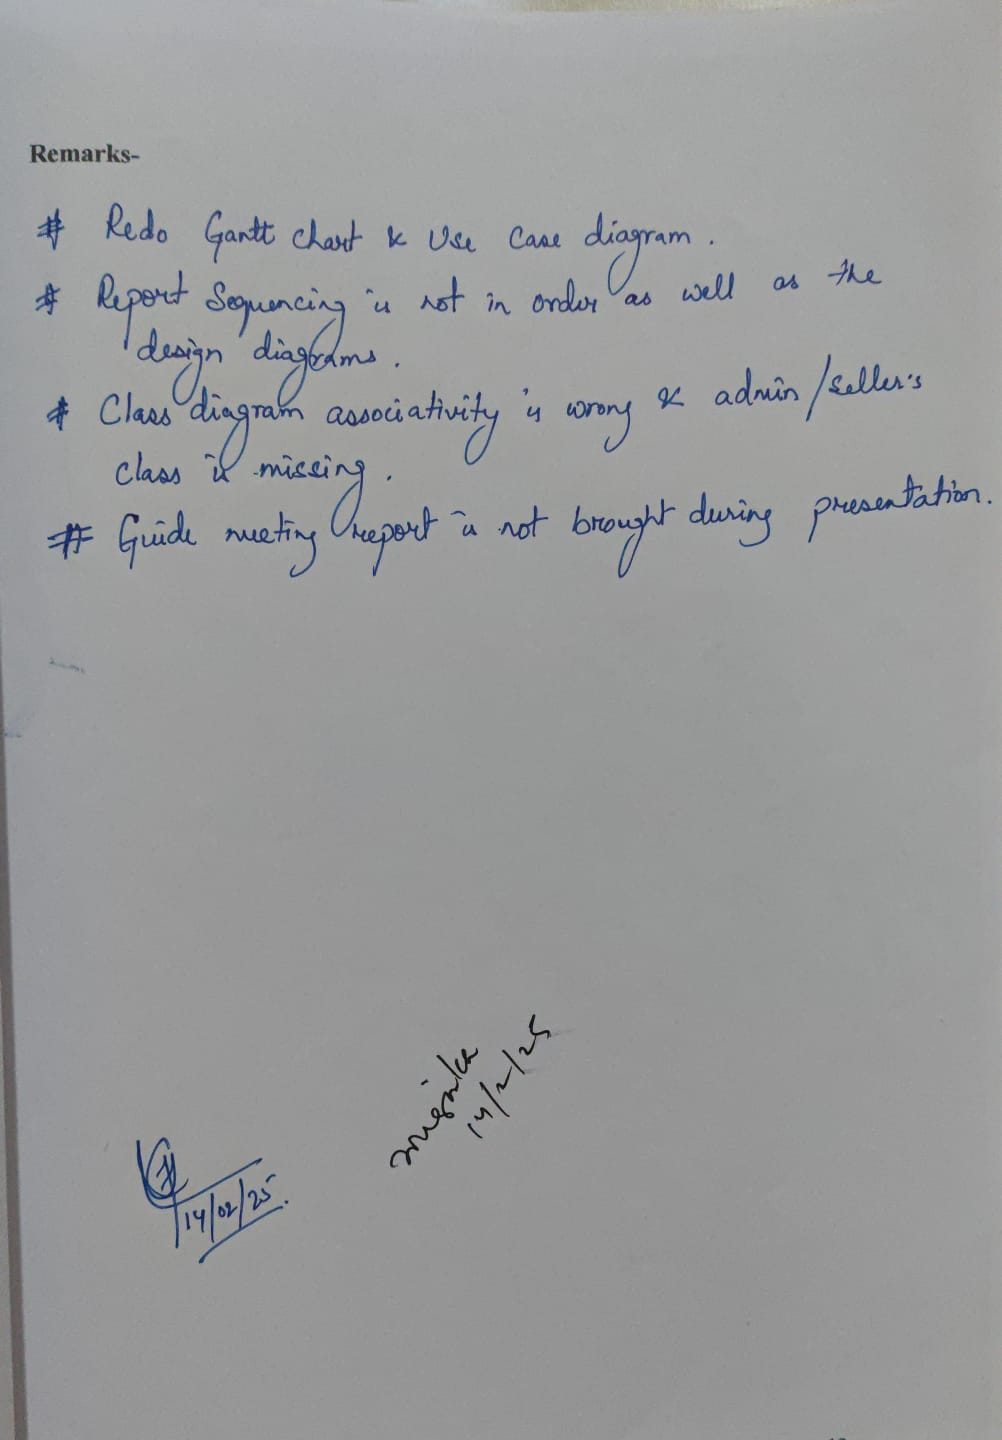 Remarks-
# Redo Gantt chart & Use Case diagram.
# Report Sequencing is not in order as well as the
design diagrams.
# Class diagram associativity is wrong & admin/seller's
class is missing.
# Guide meeting report is not brought during presentation.
14/2/25
14/02/25.